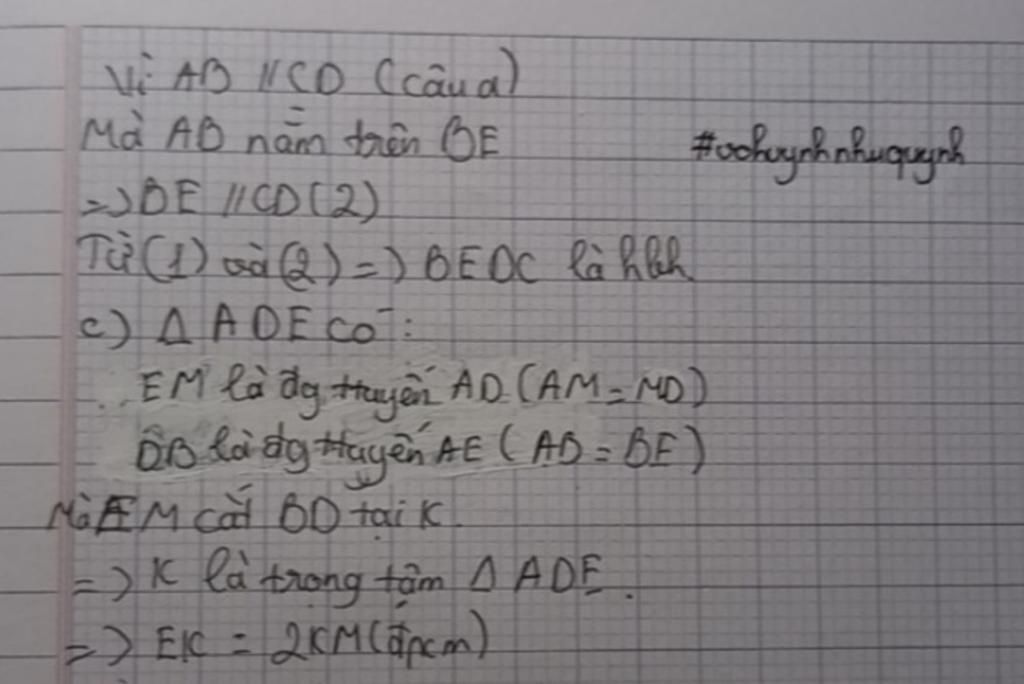 Vì AB // CD (câu a)
Mà AB nằm trên BE
#vohuynhnhuquynh
=> BE // CD (2)
Từ (1) và (2) => BEDC là hbh
c) Δ ADE có:
EM là đg tuyến AD (AM = MD)
DB là đg tuyến AE (AB = BE)
Mà EM cắt BD tại K.
=> K là trọng tâm Δ ADE.
=> EK = 2KM (đpcm)